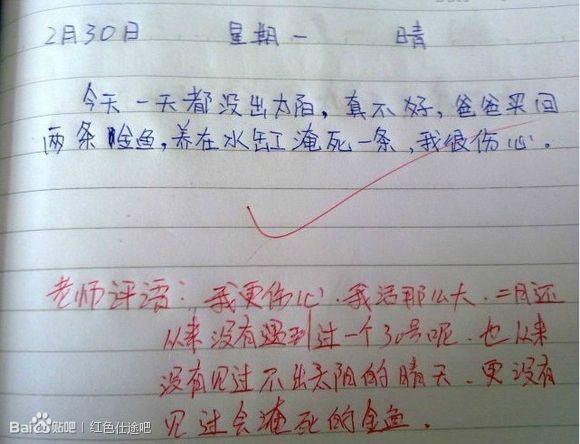 2月30日 星期一 晴
今天一天都没出太阳，真不好，爸爸买回
两条金鱼，养在水缸淹死一条，我很伤心。
老师评语：我更伤心．我活那么大．二月还
从来没有遇到过一个30号呢．也从来
没有见过不出太阳的晴天．更没有
见过会淹死的金鱼．
Bai 贴吧 | 红色仕途吧